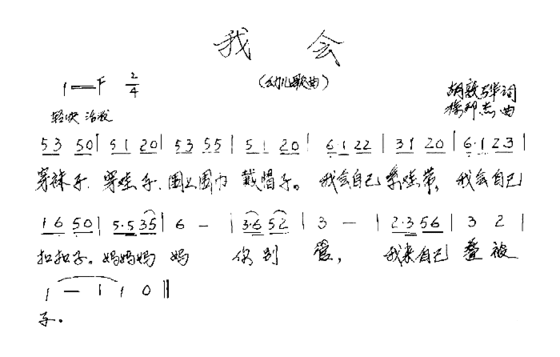 我 会
(幼儿歌曲)
1=F 2/4
胡敦骅词
轻快 活泼
杰曲
53 50 | 51 20 | 53 55 | 51 20 | 6·1 22 | 31 20 | 6·1 23 |
穿袜子，穿鞋子，围上围巾 戴帽子。我会自己 系鞋带，我会自己
16 50 | 5·5 35 | 6 — | 3·6 52 | 3 — | 2·3 56 | 3 2 |
扣扣子。妈妈妈 妈 你别 管， 我来自己 叠被
1 — | 1 0 ||
子。